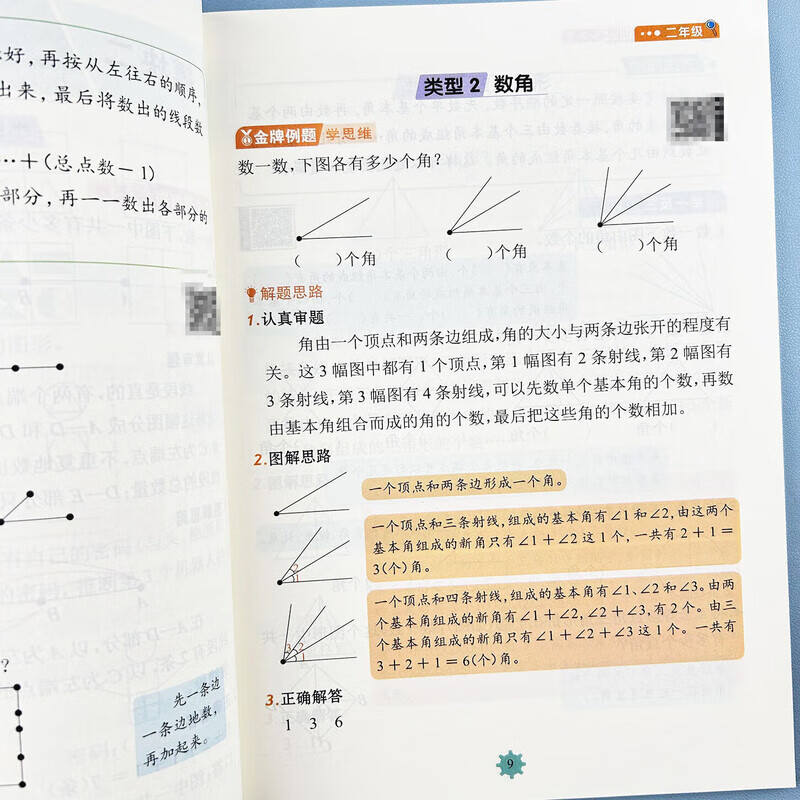 好,再按从左往右的顺序,
出来,最后将数出的线段数
…+(总点数-1)
部分,再一一数出各部分的
?
先一条边
一条边地数,
再加起来。
二年级
类型2 数角
金牌例题 学思维
数一数,下图各有多少个角?
( )个角 ( )个角 ( )个角
解题思路
1.认真审题
角由一个顶点和两条边组成,角的大小与两条边张开的程度有
关。这3幅图中都有1个顶点,第1幅图有2条射线,第2幅图有
3条射线,第3幅图有4条射线,可以先数单个基本角的个数,再数
由基本角组合而成的角的个数,最后把这些角的个数相加。
2.图解思路
一个顶点和两条边形成一个角。
2
1
一个顶点和三条射线,组成的基本角有∠1和∠2,由这两个
基本角组成的新角只有∠1+∠2这1个,一共有2+1=
3(个)角。
3
2
1
一个顶点和四条射线,组成的基本角有∠1、∠2和∠3。由两
个基本角组成的新角有∠1+∠2,∠2+∠3,有2个。由三
个基本角组成的新角只有∠1+∠2+∠3这1个。一共有
3+2+1=6(个)角。
3.正确解答
1 3 6
9